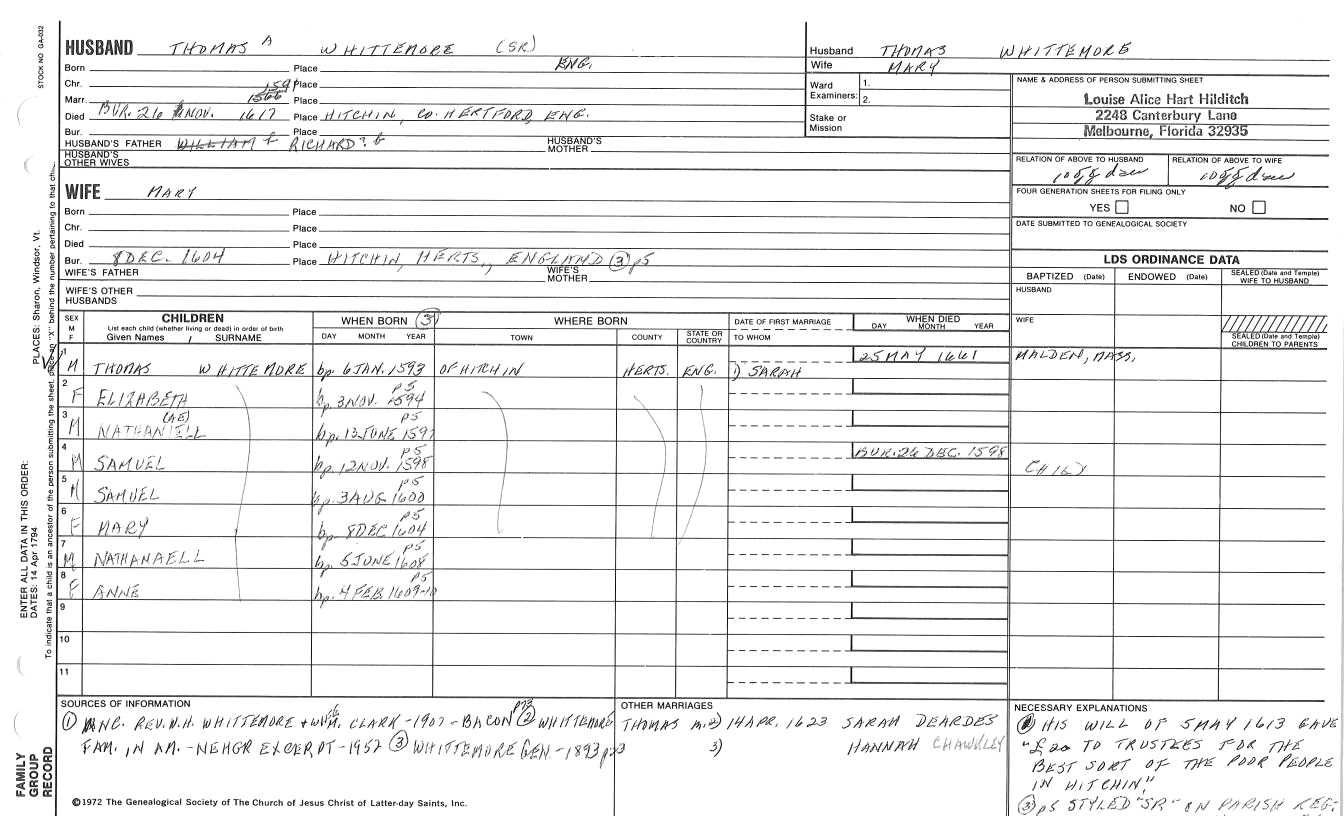 STOCK NO GA-032
HUSBAND THOMAS A WHITTEMORE (SR)
Born Place ENG.
Chr. 1591 Place
Marr. 1566 Place
Died BUR. 26 NOV. 1617 Place HITCHIN, CO. HERTFORD, ENG.
Bur. Place
HUSBAND'S FATHER WILLIAM & RICHARD? & HUSBAND'S MOTHER
HUSBAND'S OTHER WIVES
WIFE MARY
Born Place
Chr. Place
Died Place
Bur. 8 DEC. 1604 Place HITCHIN, HERTS., ENGLAND (3) p5
WIFE'S FATHER WIFE'S MOTHER
WIFE'S OTHER HUSBANDS
Husband THOMAS WHITTEMORE
Wife MARY
Ward Examiners: 1.
2.
Stake or Mission
NAME & ADDRESS OF PERSON SUBMITTING SHEET
Louise Alice Hart Hilditch
2248 Canterbury Lane
Melbourne, Florida 32935
RELATION OF ABOVE TO HUSBAND RELATION OF ABOVE TO WIFE
FOUR GENERATION SHEETS FOR FILING ONLY
YES NO
DATE SUBMITTED TO GENEALOGICAL SOCIETY
LDS ORDINANCE DATA
BAPTIZED (Date) ENDOWED (Date) SEALED (Date and Temple) WIFE TO HUSBAND
HUSBAND
WIFE
SEALED (Date and Temple) CHILDREN TO PARENTS
SEX M F
CHILDREN
List each child (whether living or dead) in order of birth
Given Names / SURNAME
WHEN BORN (3)
DAY MONTH YEAR
WHERE BORN
TOWN COUNTY STATE OR COUNTRY
DATE OF FIRST MARRIAGE
TO WHOM
WHEN DIED
DAY MONTH YEAR
1 M THOMAS WHITTEMORE bp. 6 JAN. 1593 OF HITCHIN HERTS. ENG. 1) SARAH 25 MAY 1661 MALDEN, MASS.
2 F ELIZABETH bp. 3 NOV. 1594 p5
3 M NATHANIELL (AE) bp. 13 JUNE 1597 p5
4 M SAMUEL bp. 12 NOV. 1598 p5 BUR. 26 DEC. 1598
5 M SAMUEL bp. 3 AUG 1600 p5
6 F MARY bp. 8 DEC 1604 p5
7 M NATHANAELL bp. 5 JUNE 1608 p5
8 F ANNE bp. 4 FEB. 1609-10 p5
9
10
11
SOURCES OF INFORMATION
(1) ANC. REV. W.H. WHITTEMORE + WM. CLARK - 1907 - BACON (2) WHITTEMORE
FAM. IN AM. - NEHGR EXCERPT - 1952 (3) WHITTEMORE GEN - 1893
OTHER MARRIAGES
THOMAS m. 2) 14 APR. 1623 SARAH DEARDES
3) HANNAH CHAWKLEY
NECESSARY EXPLANATIONS
HIS WILL OF 5 MAY 1613 GAVE
"£20 TO TRUSTEES FOR THE
BEST SORT OF THE POOR PEOPLE
IN HITCHIN."
(3) p5 STYLED "SR" ON PARISH REG.
©1972 The Genealogical Society of The Church of Jesus Christ of Latter-day Saints, Inc.
FAMILY GROUP RECORD
ENTER ALL DATA IN THIS ORDER:
DATES: 14 Apr 1794
PLACES: Sharon, Windsor, Vt.